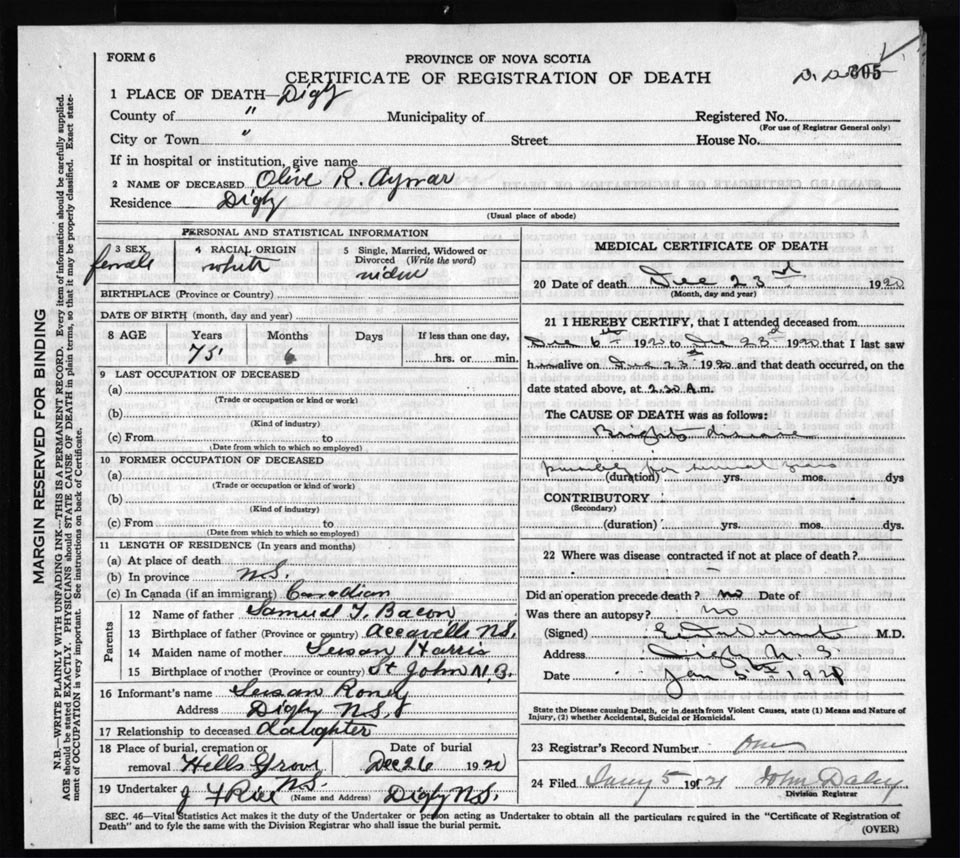 FORM 6
PROVINCE OF NOVA SCOTIA
CERTIFICATE OF REGISTRATION OF DEATH
605
1 PLACE OF DEATH—Digby
County of " Municipality of Registered No.
(For use of Registrar General only)
City or Town " Street House No.
If in hospital or institution, give name
2 NAME OF DECEASED Olive R. Aymar
Residence Digby
(Usual place of abode)
PERSONAL AND STATISTICAL INFORMATION
3 SEX 4 RACIAL ORIGIN 5 Single, Married, Widowed or Divorced (Write the word)
female white widow
BIRTHPLACE (Province or Country)
DATE OF BIRTH (month, day and year)
8 AGE Years Months Days If less than one day,
75 6 hrs. or min.
9 LAST OCCUPATION OF DECEASED
(a)
(Trade or occupation or kind or work)
(b)
(Kind of industry)
(c) From to
(Date from which to which so employed)
10 FORMER OCCUPATION OF DECEASED
(a)
(Trade or occupation or kind of work)
(b)
(Kind of industry)
(c) From to
(Date from which to which so employed)
11 LENGTH OF RESIDENCE (In years and months)
(a) At place of death
(b) In province N.S.
(c) In Canada (if an immigrant) Canadian
Parents
12 Name of father Samuel T. Bacon
13 Birthplace of father (Province or country) N.S.
14 Maiden name of mother Susan Harris
15 Birthplace of mother (Province or country) St John N.B.
16 Informant's name Susan Roney
Address Digby N.S.
17 Relationship to deceased daughter
18 Place of burial, cremation or removal Date of burial
Hills Grove N.S. Dec 26 1920
19 Undertaker Rice Digby N.S.
(Name and Address)
MEDICAL CERTIFICATE OF DEATH
20 Date of death Dec 23rd 1920
(Month, day and year)
21 I HEREBY CERTIFY, that I attended deceased from
Dec 6th 1920 to Dec 23 1920 that I last saw
h alive on Dec 23 1920 and that death occurred, on the
date stated above, at 2.20 A.m.
The CAUSE OF DEATH was as follows:
Brights disease
for several years
(duration) yrs. mos. dys
CONTRIBUTORY
(Secondary)
(duration) yrs. mos. dys.
22 Where was disease contracted if not at place of death?
Did an operation precede death? no Date of
Was there an autopsy? no
(Signed) M.D.
Address Digby N.S.
Date Jan 5th 1921
State the Disease causing Death, or in death from Violent Causes, state (1) Means and Nature of
Injury, (2) whether Accidental, Suicidal or Homicidal.
23 Registrar's Record Number one
24 Filed Jany 5 1921 John Daley
Division Registrar
SEC. 46—Vital Statistics Act makes it the duty of the Undertaker or person acting as Undertaker to obtain all the particulars required in the "Certificate of Registration of
Death" and to fyle the same with the Division Registrar who shall issue the burial permit.
(OVER)
MARGIN RESERVED FOR BINDING
N.B.—WRITE PLAINLY WITH UNFADING INK—THIS IS A PERMANENT RECORD. Every item of information should be carefully supplied.
AGE should be stated EXACTLY. PHYSICIANS should STATE CAUSE OF DEATH in plain terms, so that it may be properly classified. Exact state-
ment of OCCUPATION is very important. See instructions on back of Certificate.